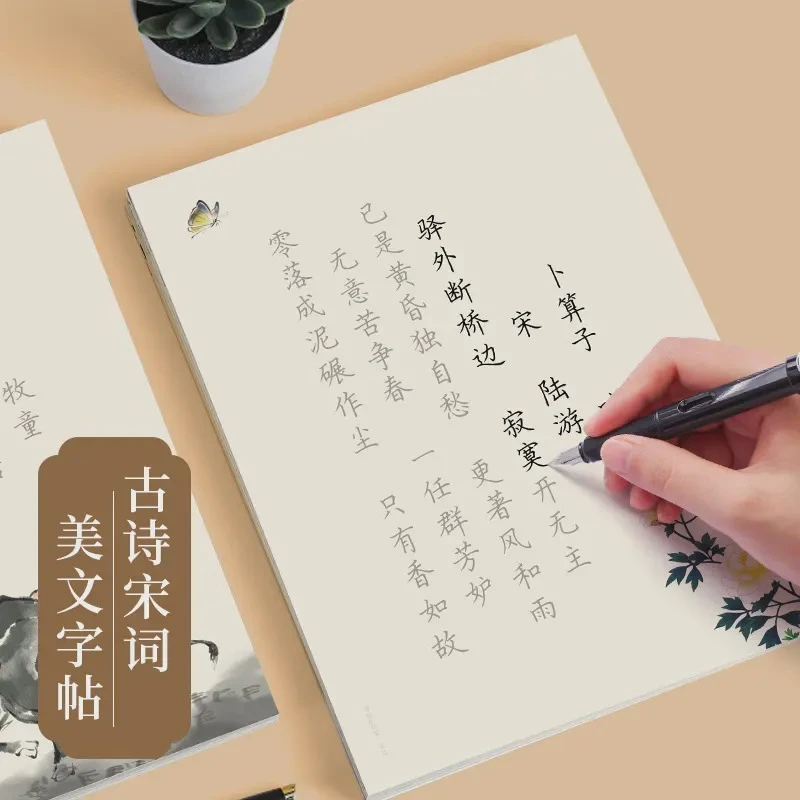 卜算子
宋 陆游
驿外断桥边 寂寞开无主
已是黄昏独自愁 更著风和雨
无意苦争春 一任群芳妒
零落成泥碾作尘 只有香如故
牧童
古诗宋词
美文字帖